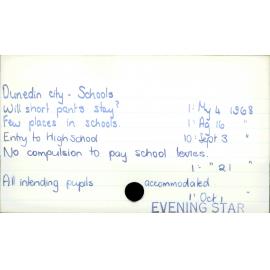 Dunedin city - Schools
Will short pants stay? 1: My 4 1968
Few places in schools. 1: Ag 16 "
Entry to High School 10: Sept 3 "
No compulsion to pay school levies.
1: " 21 "
All intending pupils accommodated.
1: Oct 1 "
EVENING STAR